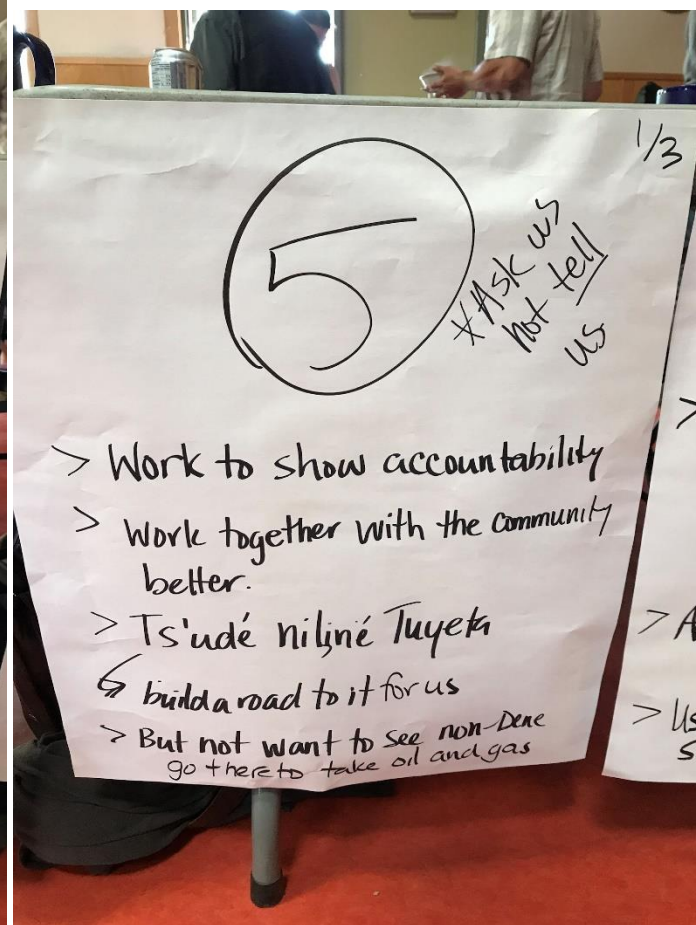 1/3
5
*Ask us
not tell
us
> Work to show accountability
> Work together with the community
better.
> Ts'udé nilįné Tuyeta
↳ build a road to it for us
> But not want to see non-Dene
go there to take oil and gas
>
> A
> Us
s